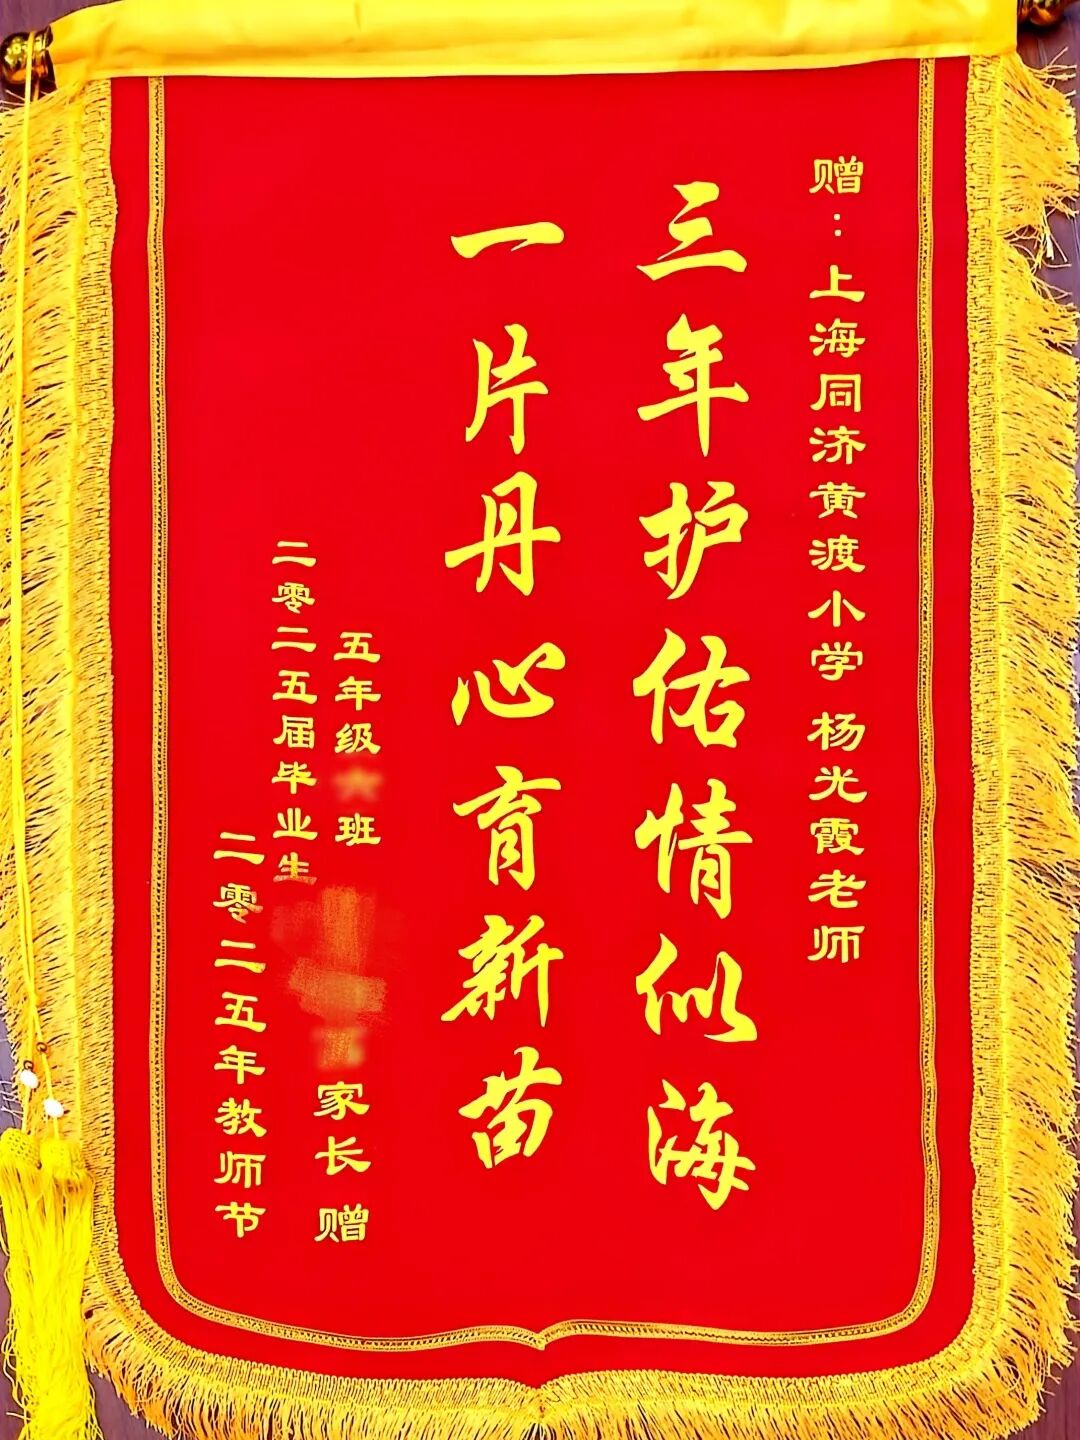 赠：上海同济黄渡小学 杨光霞老师
三年护佑情似海
一片丹心育新苗
五年级 班
二零二五届毕业生
家长 赠
二零二五年教师节